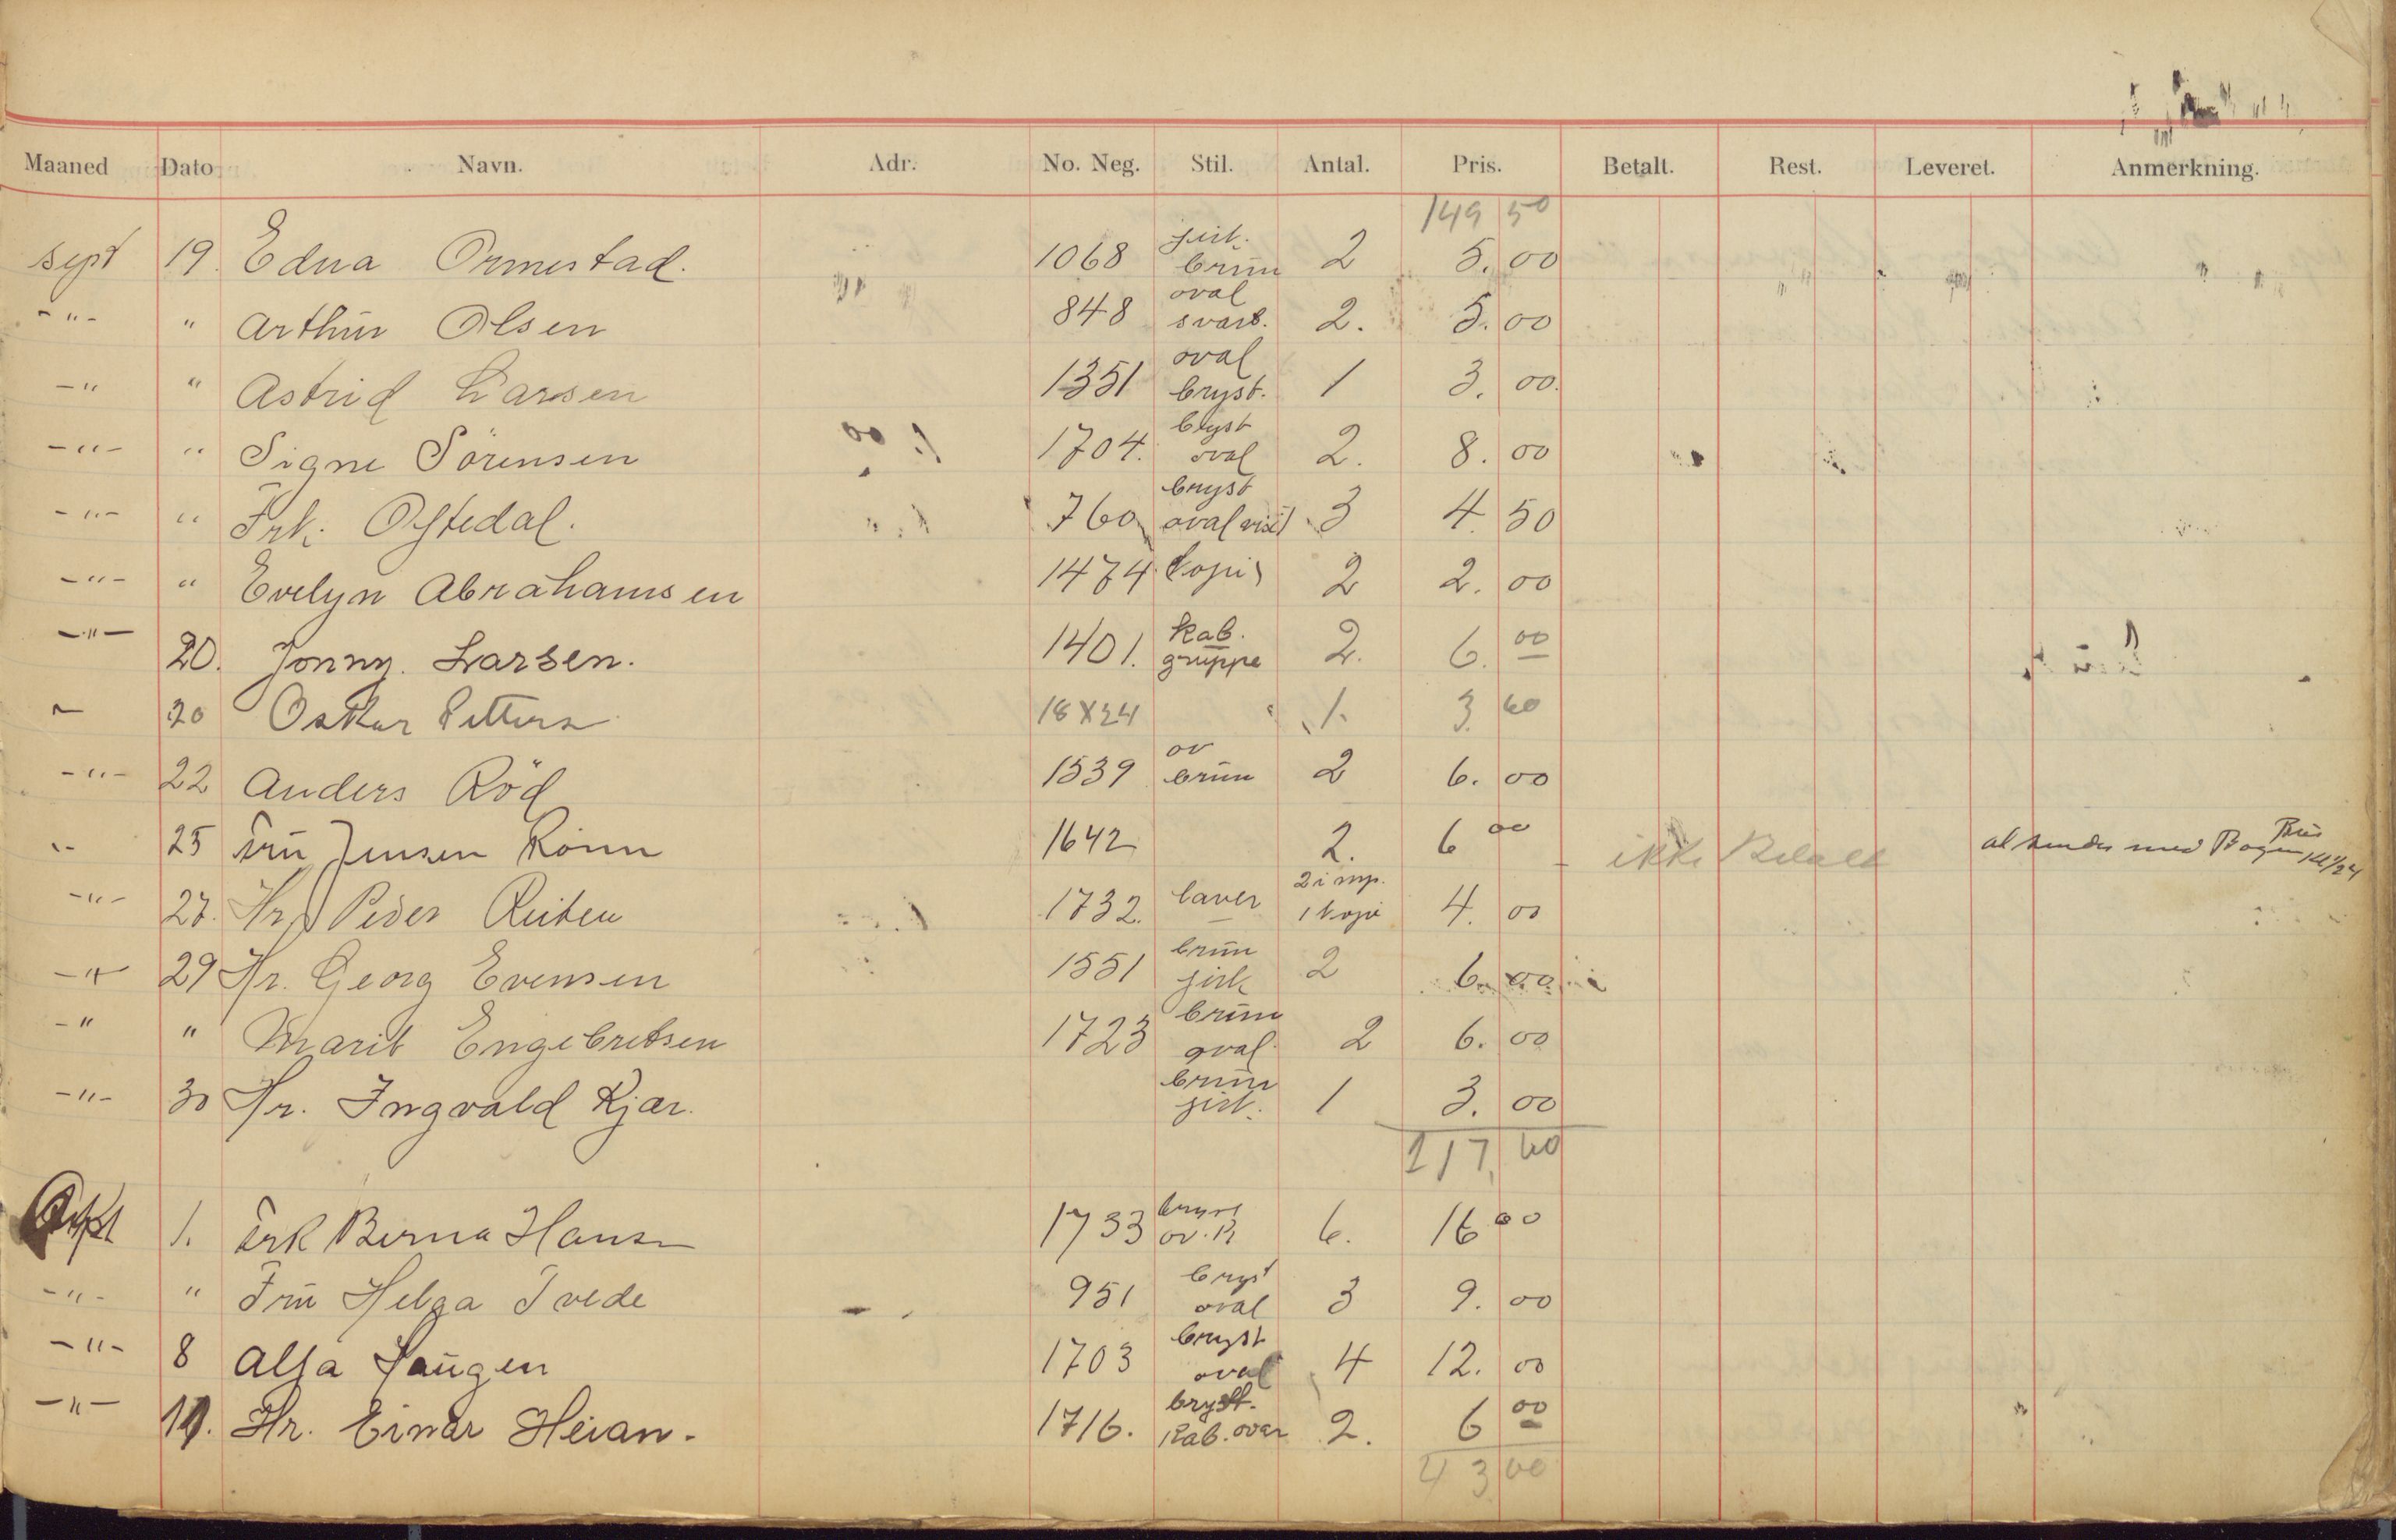 Maaned Dato Navn. Adr. No. Neg. Stil. Antal. Pris. Betalt. Rest. Leveret. Anmerkning.
149 50
sept 19. Edna Ormestad. 1068 brün 2 5. 00
-"- " Arthür Olsen 848 oval svart. 2. 5. 00
-" " Astrid Larsen 1351 oval bryst. 1 3. 00.
-"- " Signe Sörensen 1704. bryst oval 2. 8. 00
-"- " Frk. Oftedal. 760 bryst oval visit 3 4. 50
-"- " Evelyn Abrahamsen 1474. kopi 2 2. 00
-"- 20. Jonny. Larsen. 1401. Kab. grüppe 2. 6. 00
20 Oskar 18X24 1. 3. 60
-"- 22 Anders Röd 1539 ov brün 2 6. 00
25 Frü Jensen 1642 2. 6 00 ikke Betalt
-"- 27. Hr. Peder 1732. 2 imp. 1 kopi 4. 00
-"- 29 Hr. Georg Evensen 1551 brün 2 6. 00
-" " Marit Engebretsen 1723 brün oval 2 6. 00
-"- 30 Hr. Ingvald Kjær. brün 1 3. 00
217. 60
Okt 1. Frk Berna Hansen 1733 bryst ov. K 6. 16 00
-"- " Frü Helga Tvede 951 bryst oval 3 9. 00
-"- 8 Alfa Haügen 1703 bryst oval 4 12. 00
-"- 11. Hr. Einar Heian. 1716. bryst. Kab. oval 2. 6 00
43 00